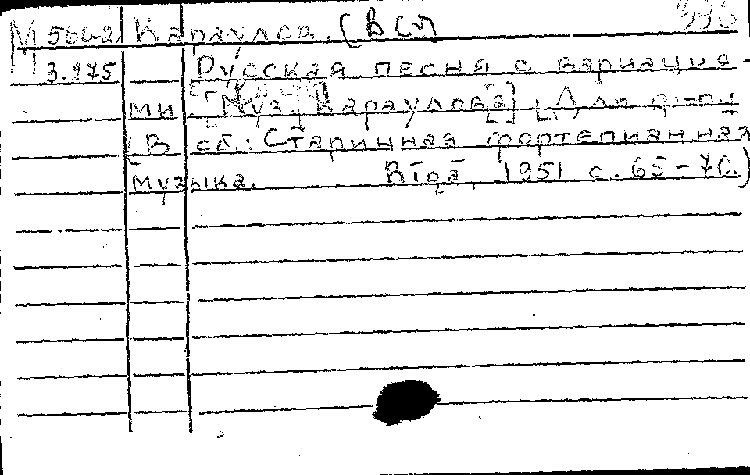 М 564а Караулов. (В.С.)
3.975 Русская песня с вариация-
ми. [Муз. Караулова] Для ф-п
(В сб.: Старинная фортепианная
музыка. 1951 с. 65-70.)